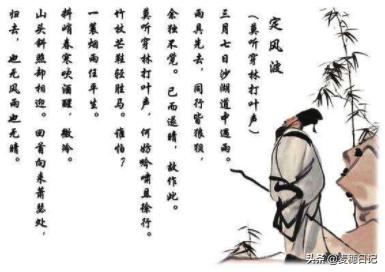 定风波
（莫听穿林打叶声）
三月七日沙湖道中遇雨。
雨具先去，同行皆狼狈，
余独不觉。已而遂晴，故作此。
莫听穿林打叶声，何妨吟啸且徐行。
竹杖芒鞋轻胜马。谁怕？
一蓑烟雨任平生。
料峭春寒吹酒醒，微冷。
山头斜照却相迎。回首向来萧瑟处，
归去，也无风雨也无晴。
头条 @麦驰日记